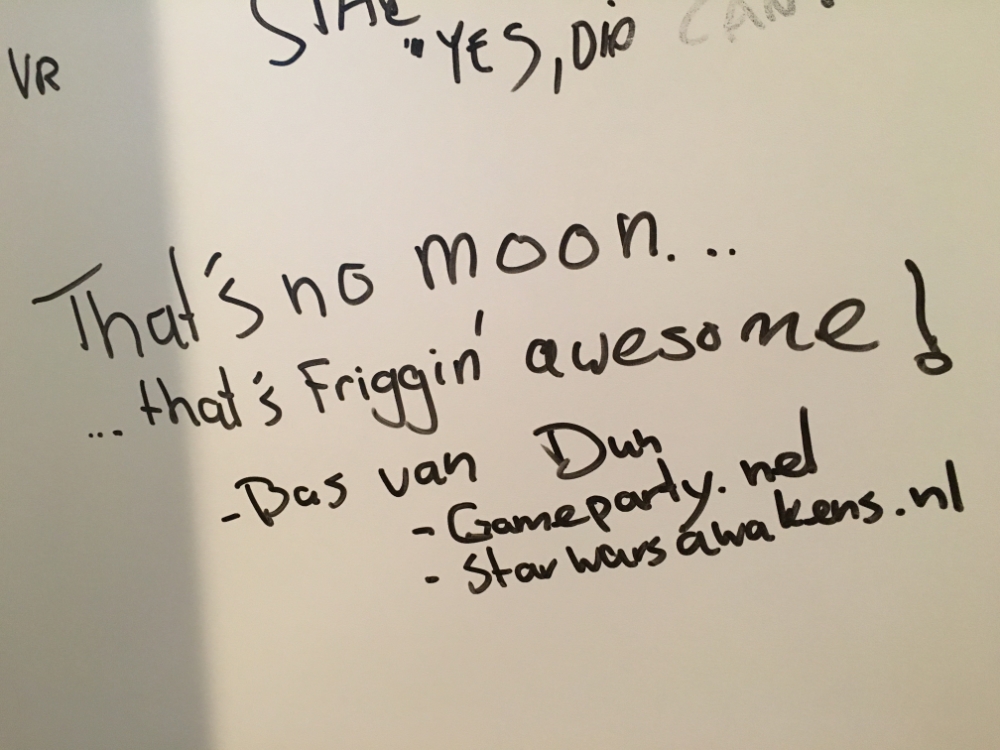 STAR
VR
"YES, DID CAN
That's no moon...
...that's Friggin' awesome!
-Bas van Dun
- Gameparty.net
- Starwarsawakens.nl